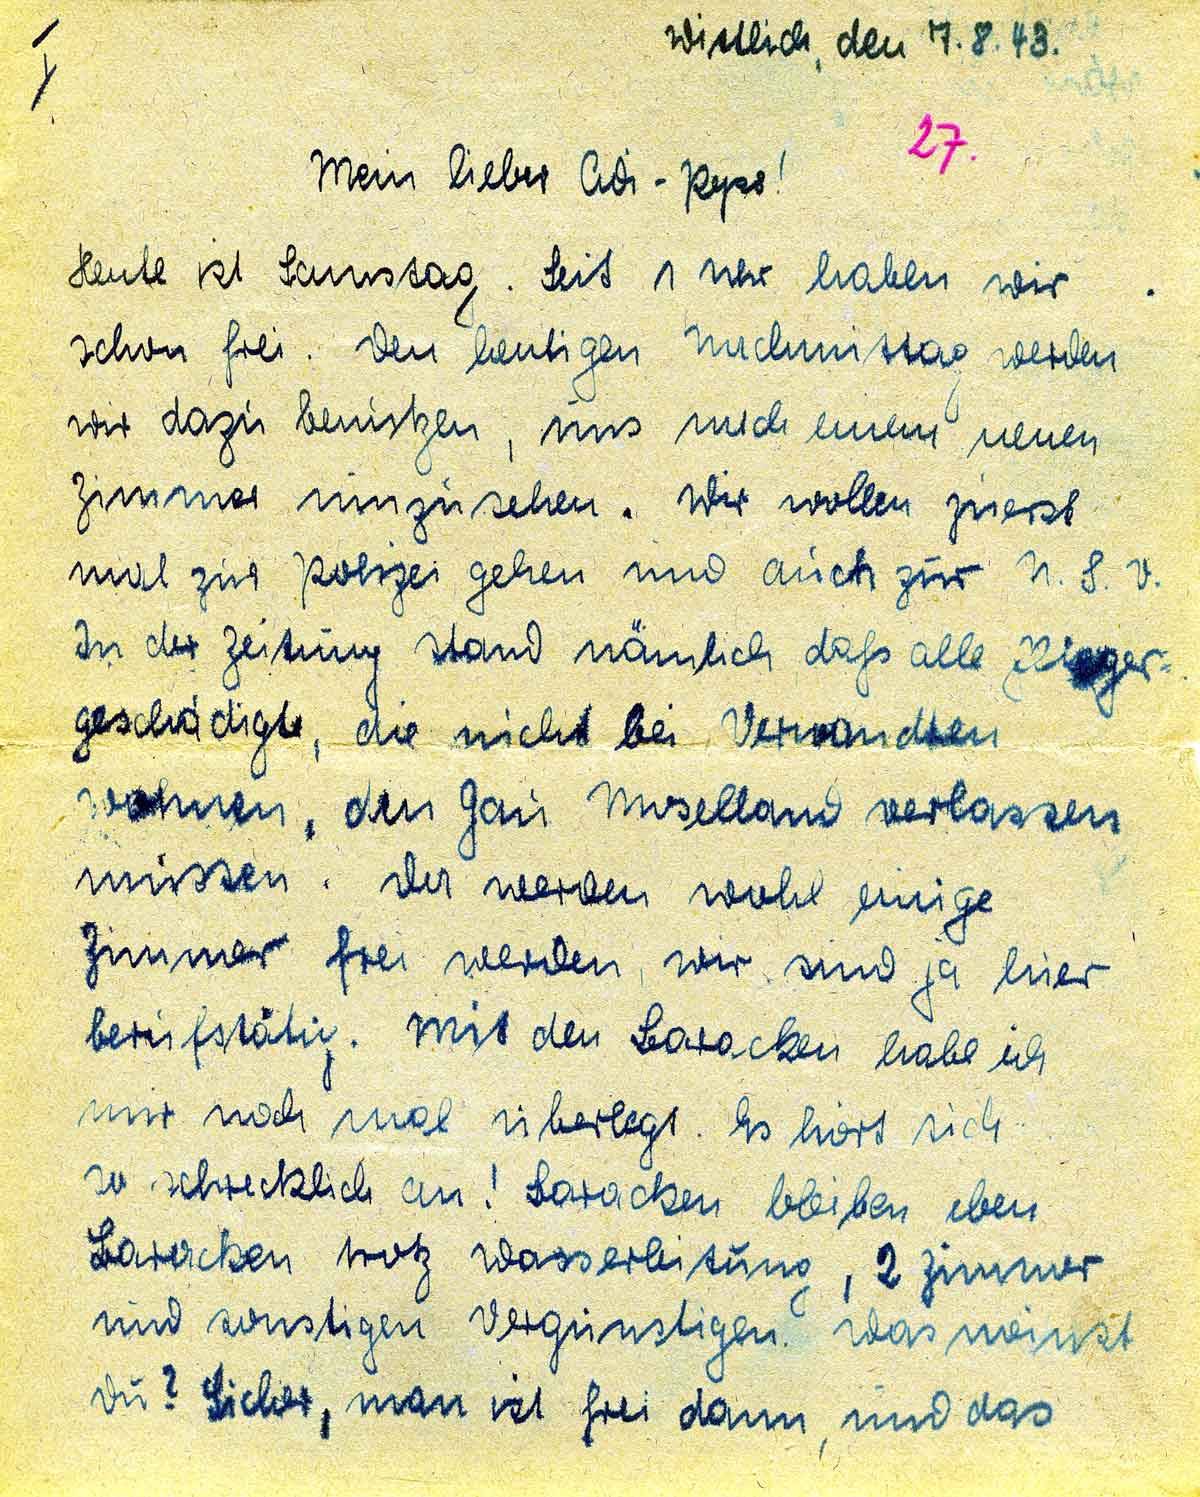 I
Wittlich, den 7.8.43.
27.
Mein lieber Adi-Peps!
Heute ist Samstag. Seit 1 Uhr haben wir
schon frei. Den heutigen Nachmittag werden
wir dazu benützen, uns nach einem neuen
Zimmer umzusehen. Wir wollen zuerst
mal zur Polizei gehen und auch zur N.S.V.
In der Zeitung stand nämlich daß alle Flieger=
geschädigte, die nicht bei Verwandten
wohnen, den Gau Moselland verlassen
müssen. Da werden wohl einige
Zimmer frei werden, wir sind ja hier
berufstätig. Mit den Baracken habe ich
mir noch mal überlegt. Es hört sich
so schrecklich an! Baracken bleiben eben
Baracken trotz Wasserleitung, 2 Zimmer
und sonstigen Vergünstigen. Was meinst
Du? Sicher, man ist frei dann, und das